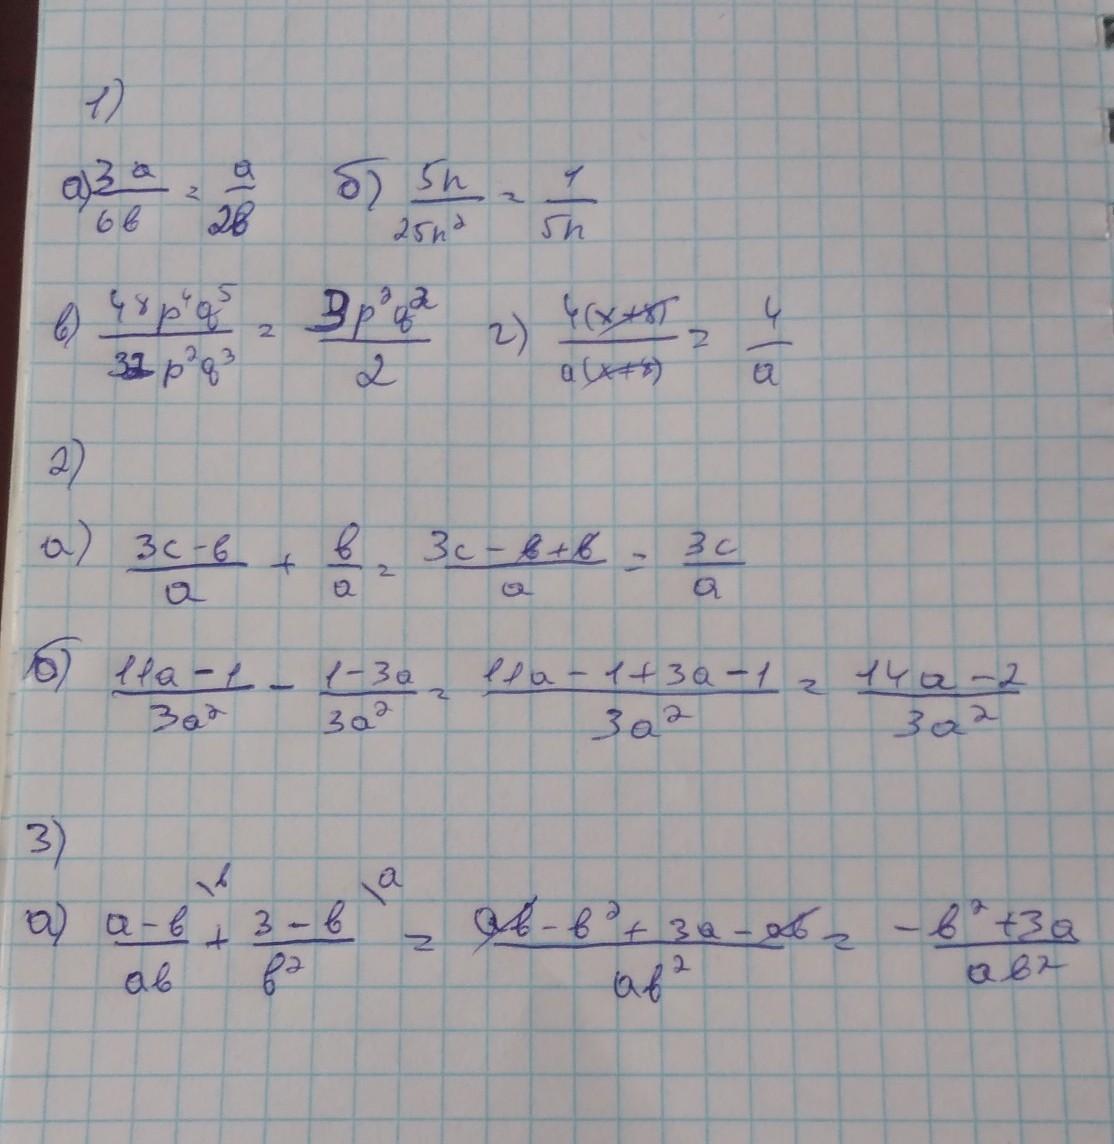 1)
а) 3a/6в = a/2в б) 5n/25n² = 1/5n
в) 48p⁴q⁵/32p²q³ = 3p²q²/2 г) 4(x+8)/a(x+8) = 4/a
2)
а) 3c-в/a + в/a = 3c-в+в/a = 3c/a
б) 11a-1/3a² - 1-3a/3a² = 11a-1+3a-1/3a² = 14a-2/3a²
3)
\в \a
а) a-в/aв + 3-в/в² = aв-в²+3a-aв/aв² = -в²+3a/aв²